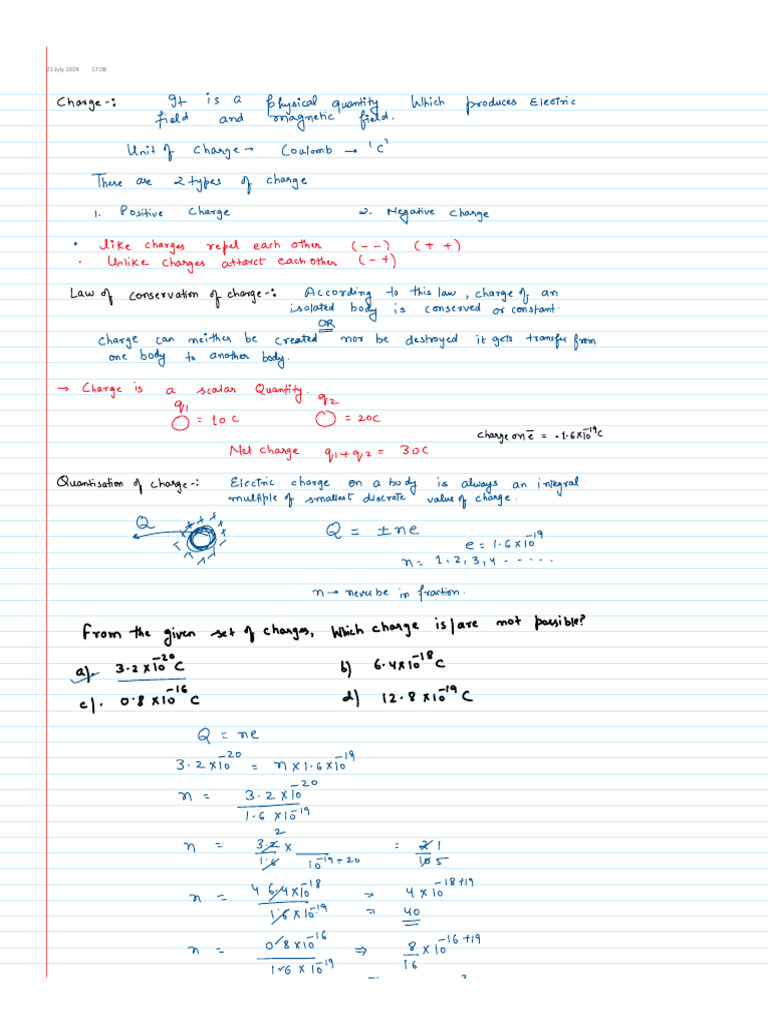 21 July 2024 17:08
Charge-: It is a physical quantity Which produces Electric
field and magnetic field.
Unit of Charge → Coulomb → 'C'
There are 2 types of charge
1. Positive Charge 2. Negative Charge
• like charges repel each other (- -) (+ +)
• Unlike charges attarct each other (- +)
Law of conservation of charge-: According to this law, charge of an
isolated body is conserved or constant.
OR
charge can neither be created nor be destroyed it gets transfer from
one body to another body.
→ Charge is a scalar Quantity.
q1 q2
= 10 C = 20C
charge on e̅ = -1.6×10^-19 C
Net charge q1+q2 = 30C
Quantisation of charge-: Electric charge on a body is always an integral
multiple of smallest discrete value of charge.
Q Q = ±ne
e = 1.6×10^-19
n = 1, 2, 3, 4 ......
n → never be in fraction.
From the given set of charges, Which charge is/are not possible?
a). 3.2×10^-20 C b) 6.4×10^-18 C
c). 0.8×10^-16 C d) 12.8×10^-19 C
Q = ne
3.2×10^-20 = n×1.6×10^-19
n = 3.2×10^-20 / 1.6×10^-19
n = 3.2 / 1.6 × / 10^-19+20 = 2 1 / 10 5
n = 4 6.4×10^-18 / 1.6×10^-19 → 4×10^-18+19
= 40
n = 0.8×10^-16 / 1.6×10^-19 ⇒ 8/16 ×10^-16+19